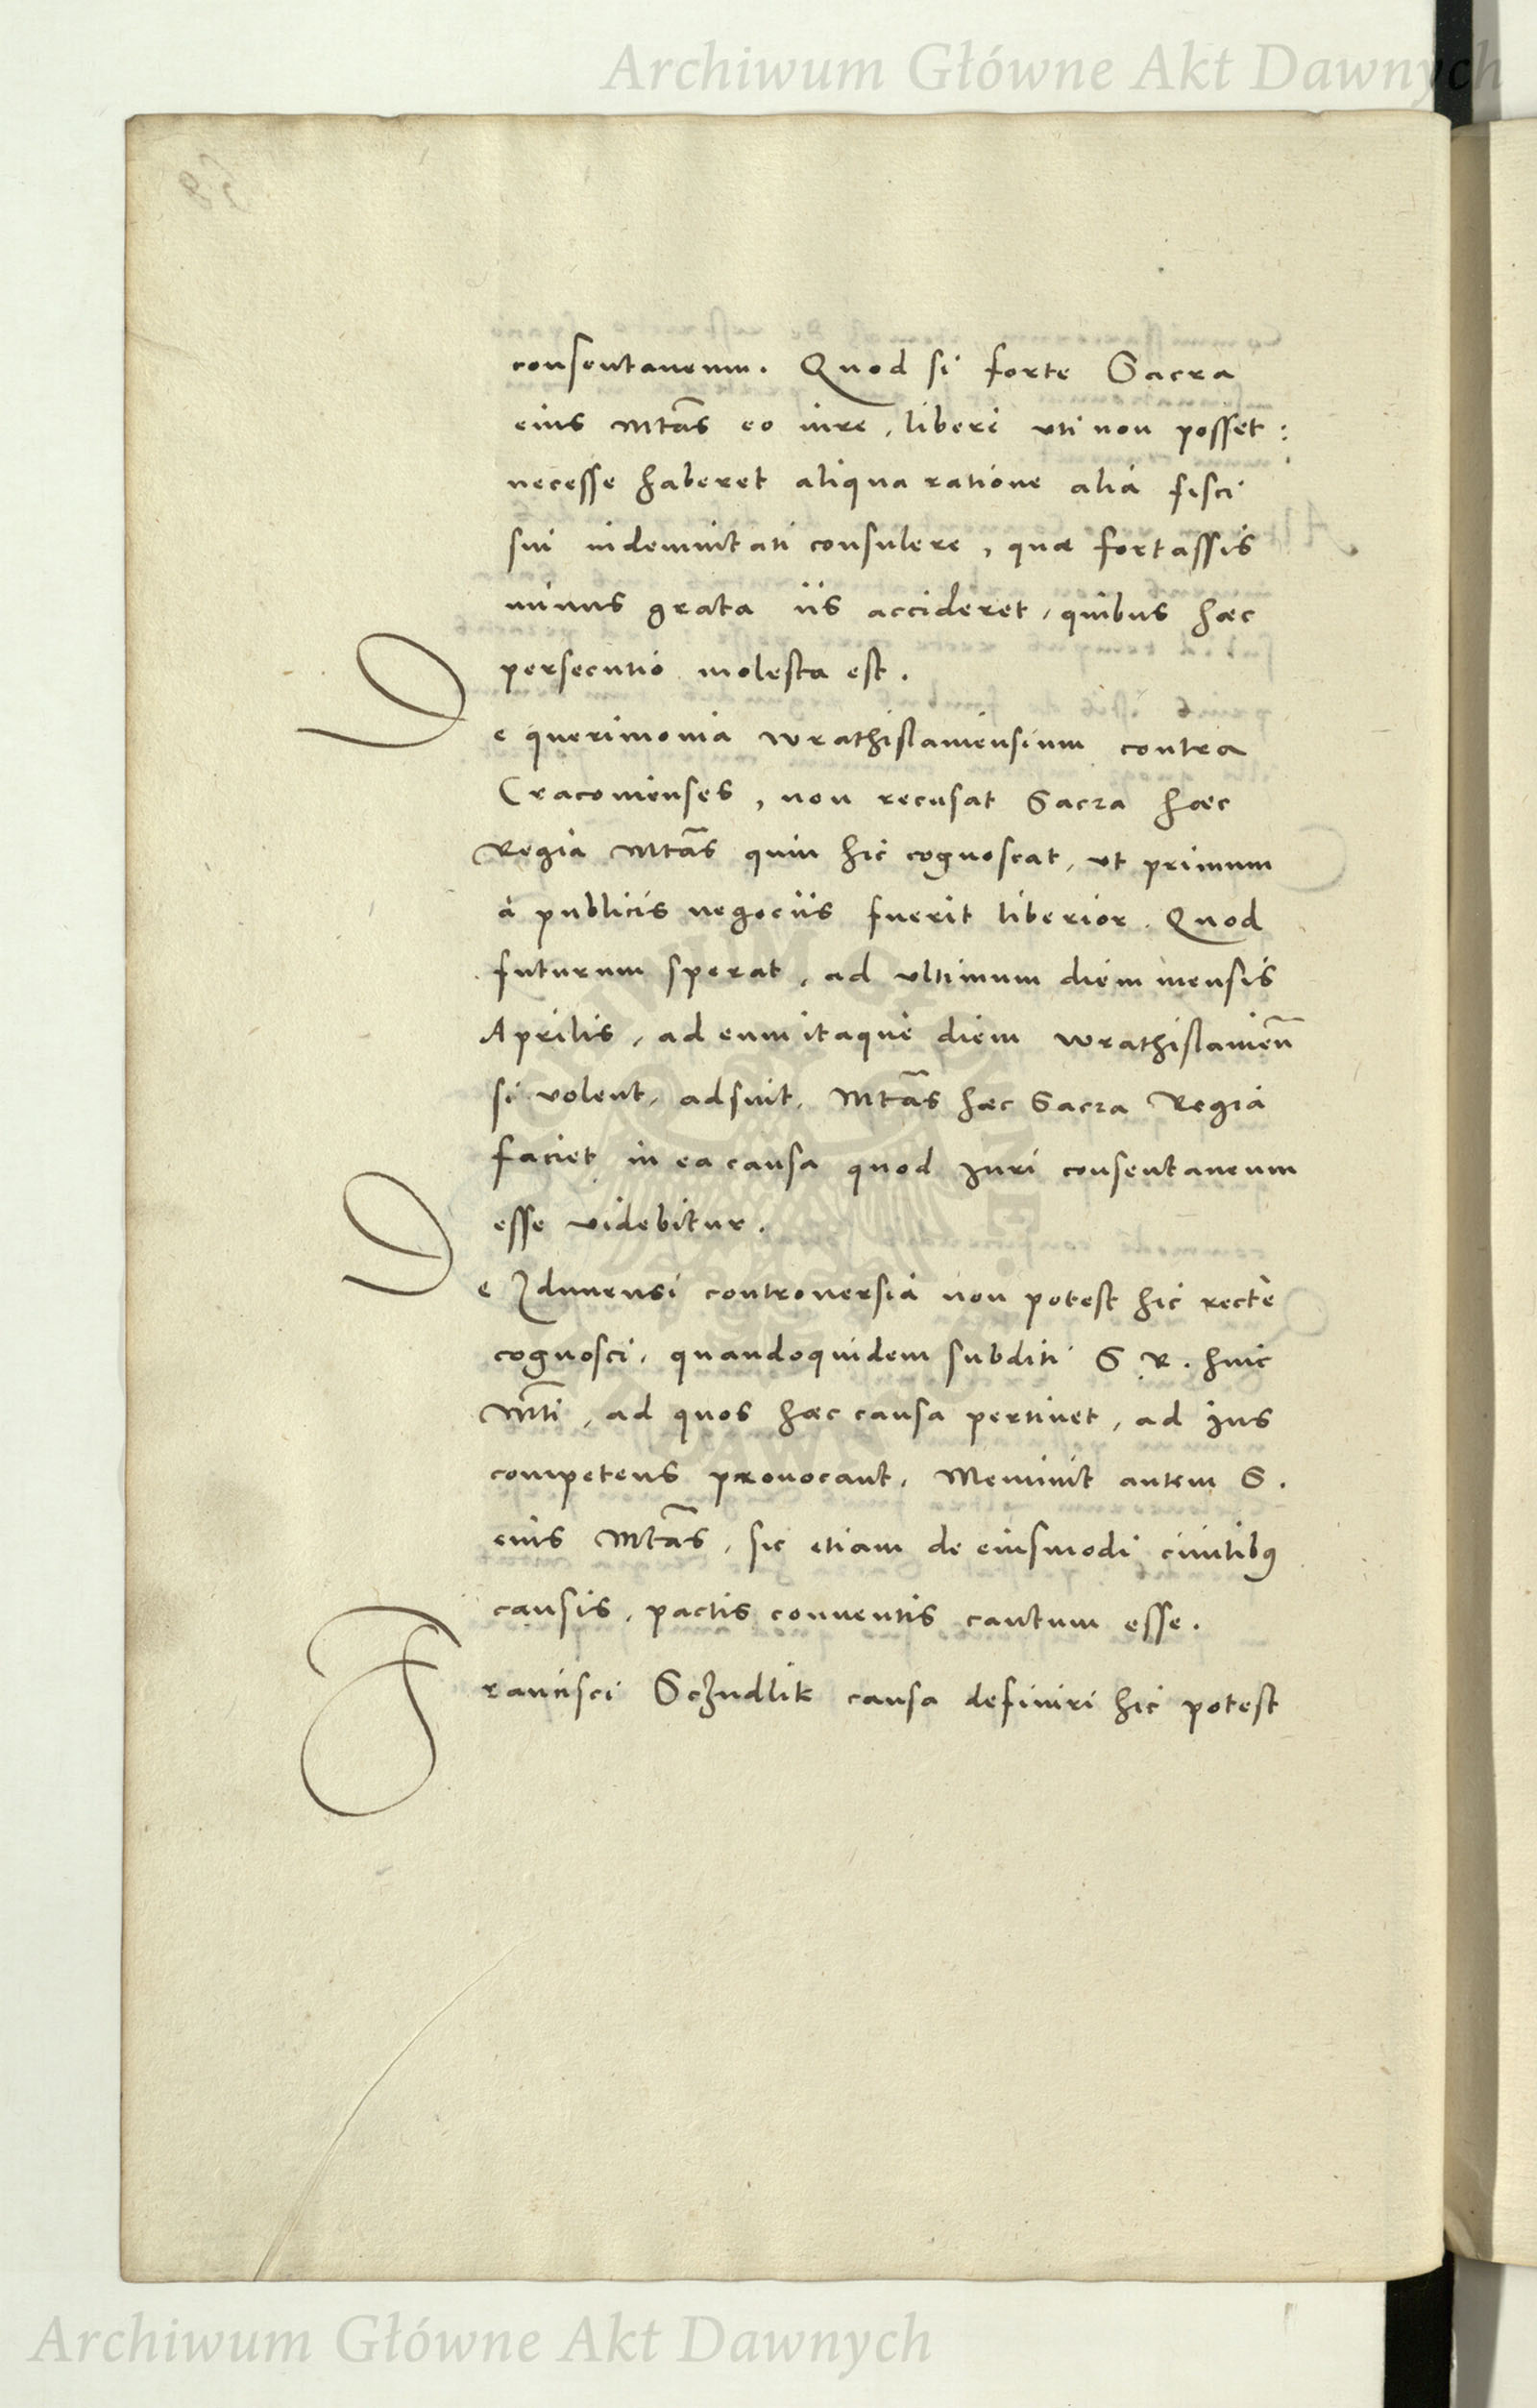 Archiwum Główne Akt Dawnych
consentaneum. Quod si forte Sacra
eius Mtas eo iure, libere uti non posset:
necesse haberet aliqua ratione alia fisci
sui indemnitati consulere, quæ fortassis
minus grata iis accideret, quibus hæc
persecutio molesta est.
De querimonia Wrathislauiensium contra
Cracouienses, non recusat Sacra hæc
Regia Mtas quin hic cognoscat, ut primum
a publicis negociis fuerit liberior. Quod
futurum sperat, ad ultimum diem mensis
Aprilis, ad eum itaque diem Wrathislauien̄
si volent, adsint, Mtas hæc Sacra Regia
faciet in ea causa quod Iuri consentaneum
esse videbitur.
De Zdunensi controuersia non potest hic rectè
cognosci, quandoquidem subditi S. R. huic
Mti, ad quos hæc causa pertinet, ad Ius
competens prouocant. Meminit autem S.
eius Mtas, sic etiam de eiusmodi ciuilibꝫ
causis, pactis conuentis cautum esse.
Francisci Sczudlik causa definiri hic potest
Archiwum Główne Akt Dawnych